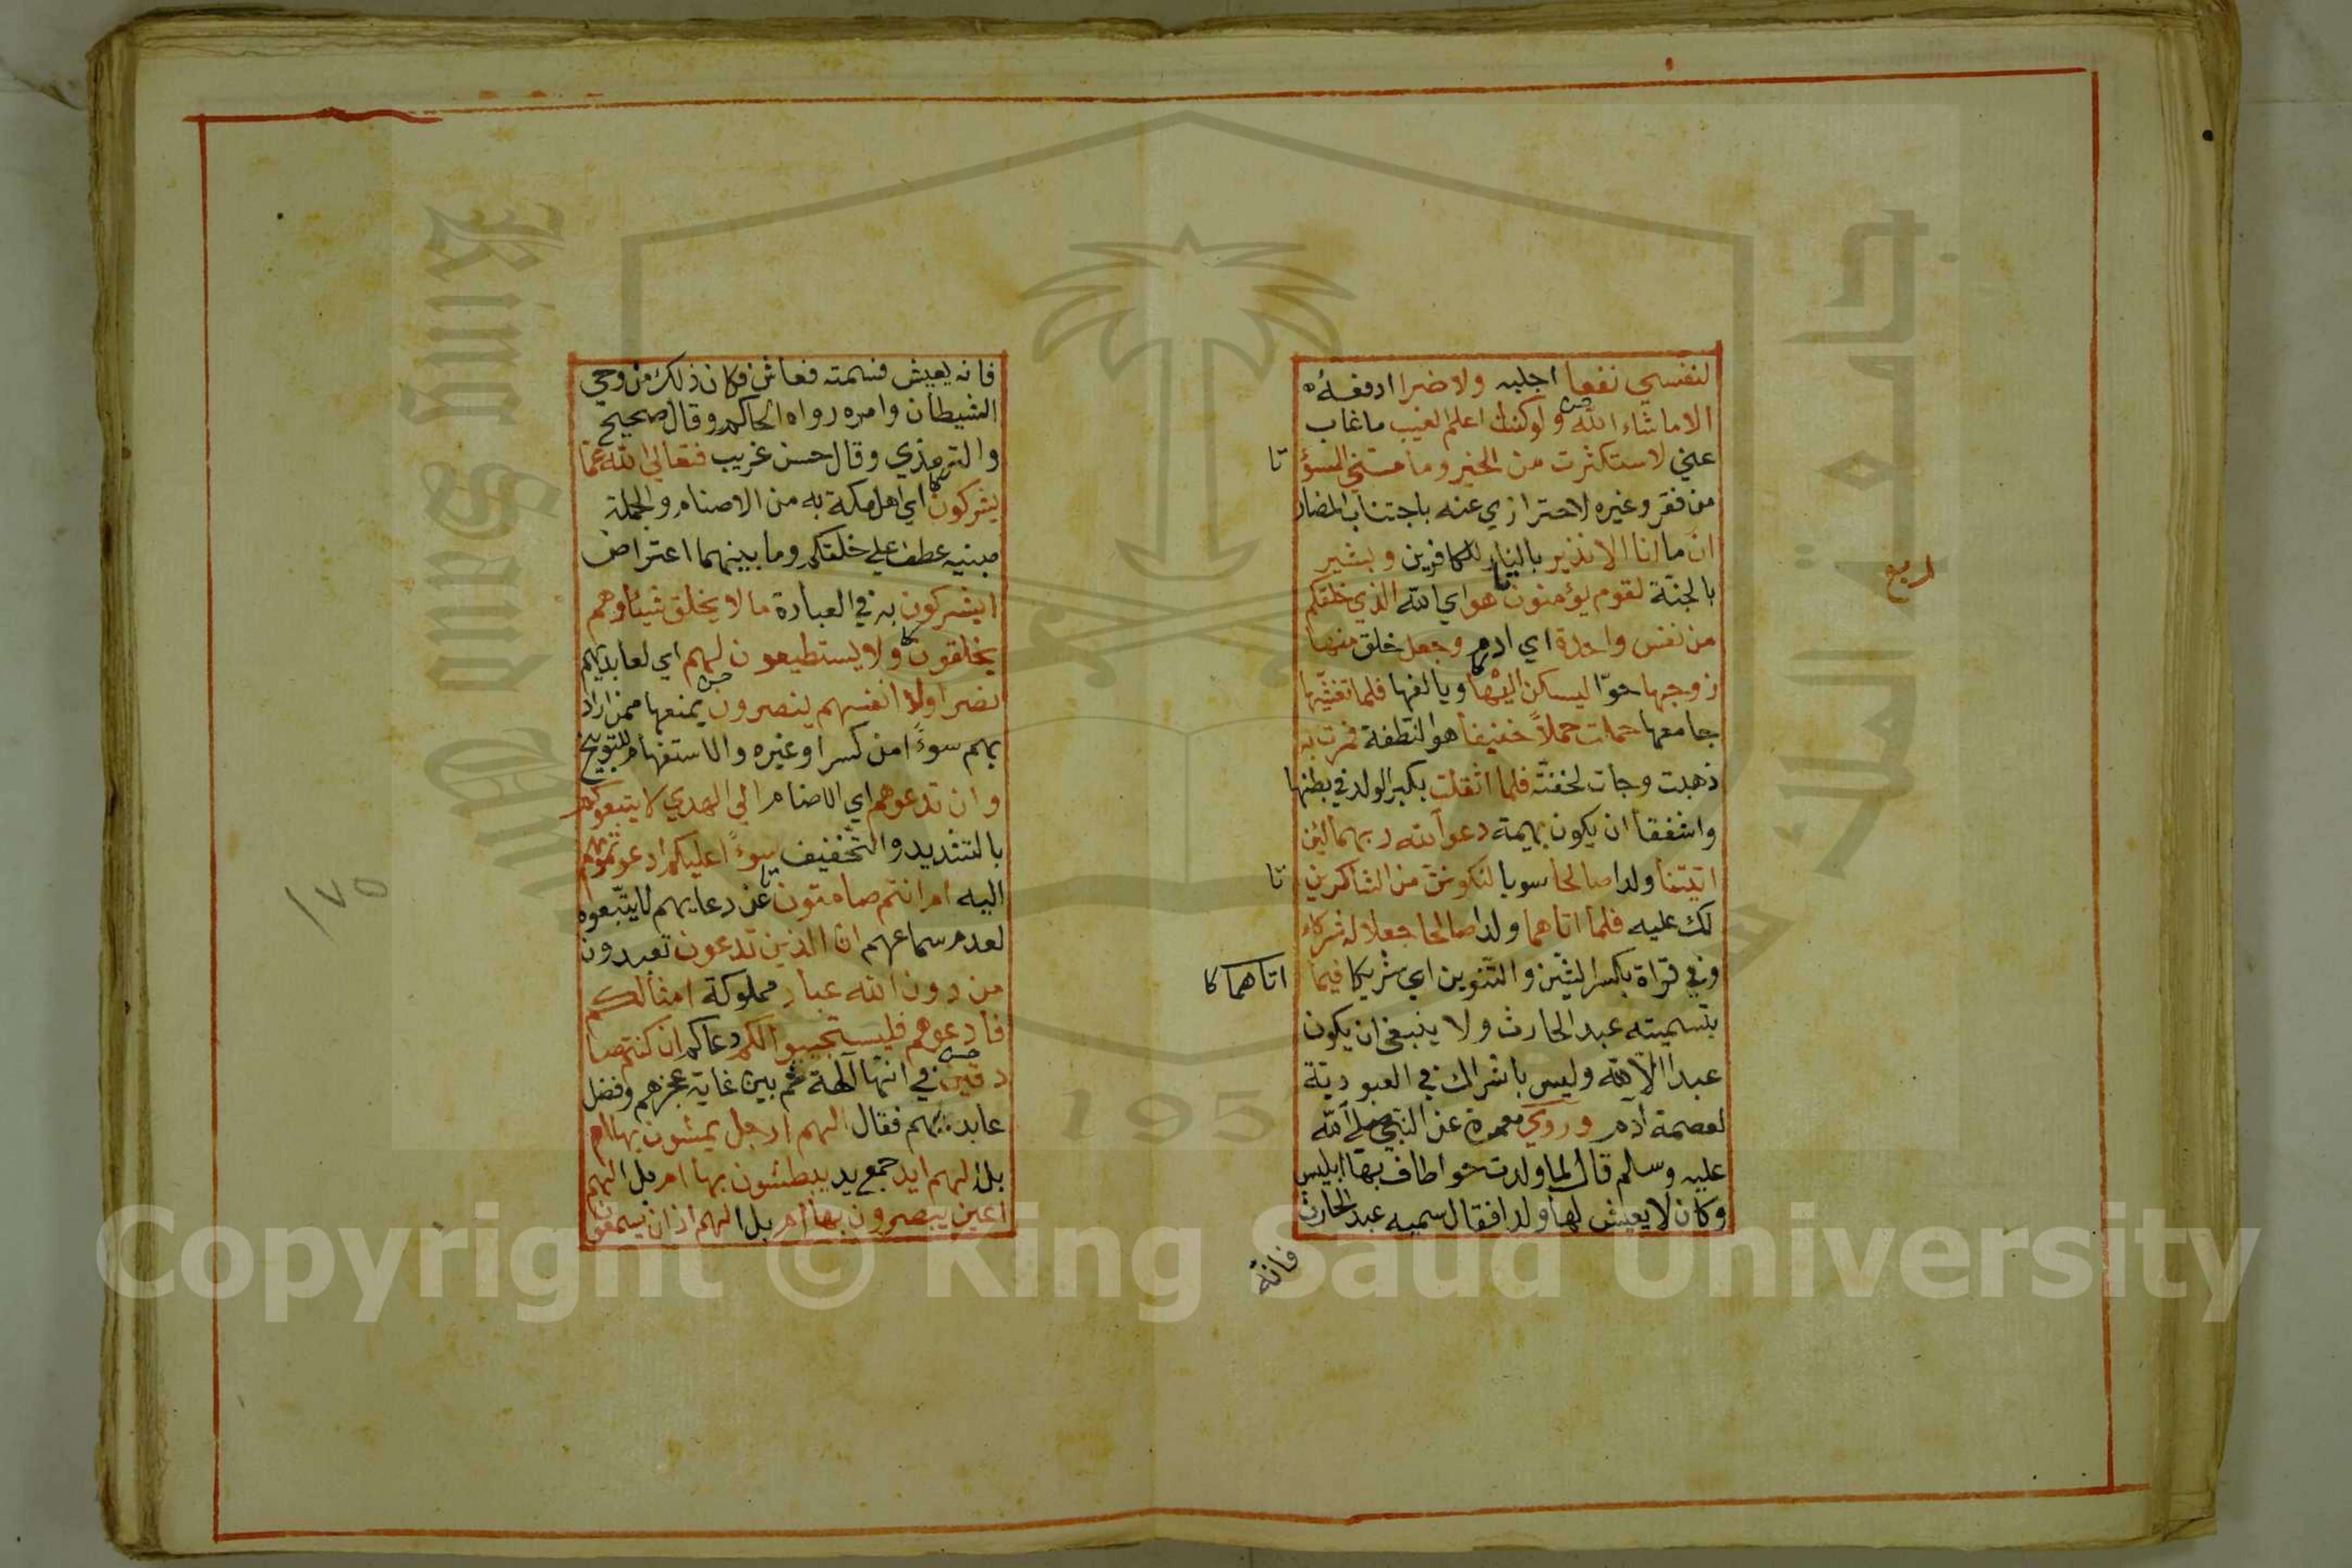 لنفسي نفعا اجلبه ولا ضرا ادفعه
الا ما شاء الله ولو كنت اعلم الغيب ما غاب
عني لاستكثرت من الخير وما مسني السوؤ
تا
من فقر وغيره لاحترازي عنه باجتناب المضار
ان ما انا الا نذير بالنار للكافرين وبشير
بالجنة لقوم يؤمنون هو اي الله الذي خلقكم
ربع
من نفس واحدة اي ادم وجعل خلق منها
زوجها حوا ليسكن اليها ويالفها فلما تغشيها
جامعها حملت حملا خفيفا هو النطفة فمرت به
ذهبت وجات لخفته فلما اثقلت بكبر الولد في بطنها
واشفقا ان يكون بهيمة دعوا الله ربهما لئن
اتيتنا ولدا صالحا سويا لنكونن من الشاكرين
تا
لك عليه فلما اتاهما ولدا صالحا جعلا له شركاء
وفي قراة بكسر الشين والتنوين اي شريكا فيما
اتاهما كا
بتسميته عبد الحارث ولا ينبغي ان يكون
عبدا الا لله وليس باشراك في العبودية
لعصمة آدم وروي سمرة عن النبي صلى الله
عليه وسلم قال لما ولدت حوا طاف بها ابليس
وكان لا يعيش لها ولد فقال سميه عبد الحارث
فانه
فانه يعيش فسمته فعاش فكان ذلك من وحي
الشيطان وامره رواه الحاكم وقال صحيح
والترمذي وقال حسن غريب فتعالى الله عما
يشركون اي اهل مكة به من الاصنام والجملة
مبنيه عطف علي خلقكم وما بينهما اعتراض
ايشركون به في العبادة ما لا يخلق شيئا وهم
يخلقون ولا يستطيعون لهم اي لعابديهم
نصرا ولا انفسهم ينصرون يمنعها ممن اراد
بهم سوءا من كسر او غيره والاستفهام للتوبيخ
وان تدعوهم اي الاصنام الي الهدي لا يتبعوكم
بالتشديد والتخفيف سوءا عليكم ادعوتموهم
اليه ام انتم صامتون عن دعايهم لا يتبعوه
لعدم سماعهم ان الذين تدعون تعبدون
من دون الله عباد مملوكة امثالكم
فادعوهم فليستجيبوا لكم دعاكم ان كنتم صا
دقين في انها آلهة ثم بين غاية عجزهم وفضل
عابديهم فقال الهم ارجل يمشون بها ام
بل الهم ايد جمع يد يبطشون بها ام بل الهم
اعين يبصرون بها ام بل الهم اذان يسمعون
١٧٥
King Saud University
جامعة الملك
195
Copyright © King Saud University